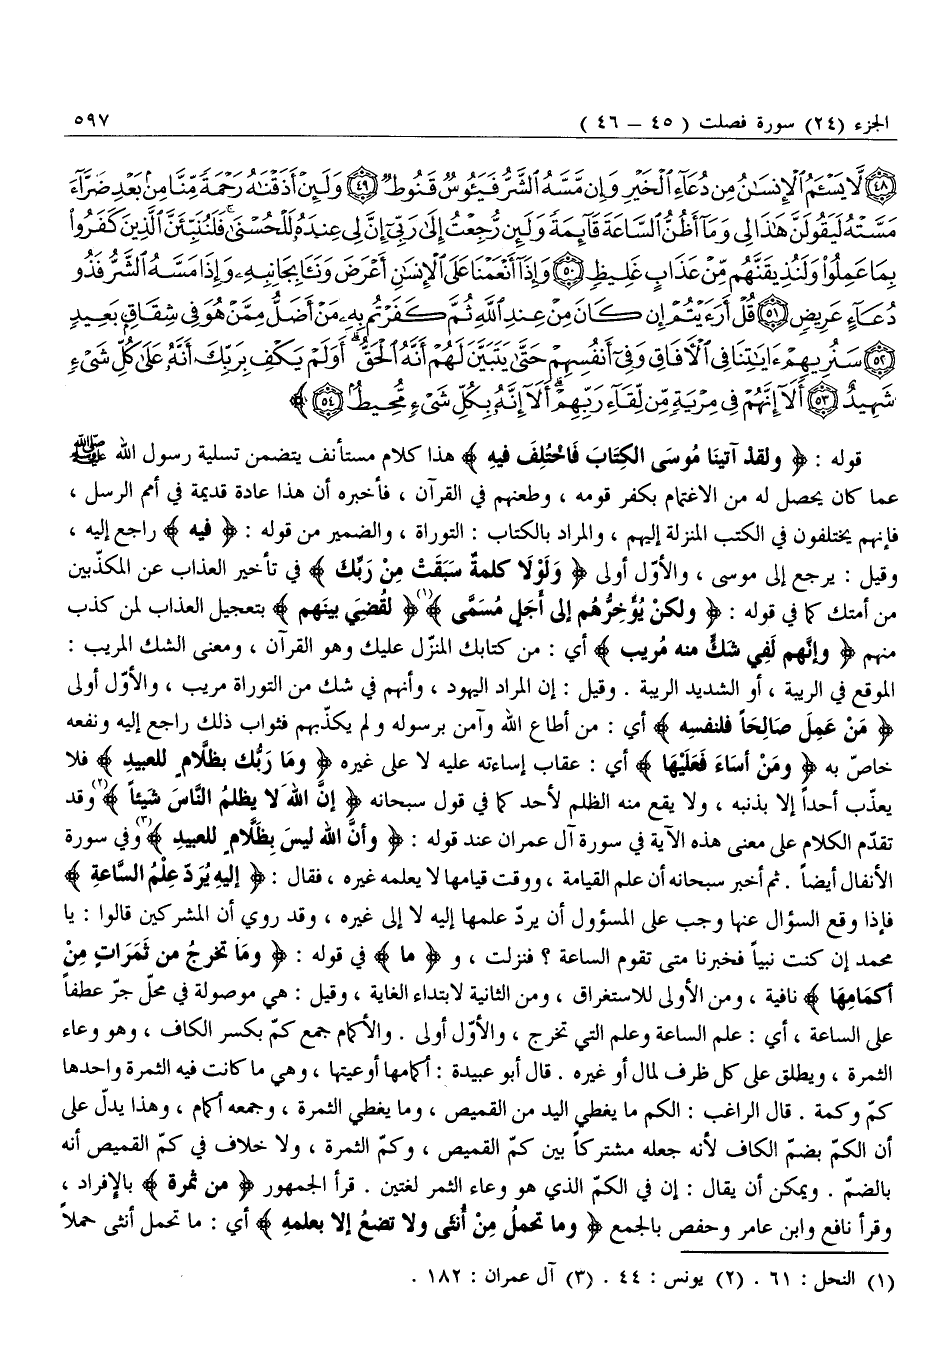 الجزء (٢٤) سورة فصلت ( ٤٥ – ٤٦ ) ٥٩٧
﴿٤٨﴾ لَّا يَسْـَٔمُ الْإِنسَانُ مِن دُعَآءِ الْخَيْرِ وَإِن مَّسَّهُ الشَّرُّ فَيَـُٔوسٌ قَنُوطٌ ﴿٤٩﴾ وَلَئِنْ أَذَقْنَاهُ رَحْمَةً مِّنَّا مِنْ بَعْدِ ضَرَّآءَ
مَسَّتْهُ لَيَقُولَنَّ هَٰذَا لِى وَمَآ أَظُنُّ السَّاعَةَ قَآئِمَةً وَلَئِن رُّجِعْتُ إِلَىٰ رَبِّىٓ إِنَّ لِى عِندَهُۥ لَلْحُسْنَىٰ ۚ فَلَنُنَبِّئَنَّ الَّذِينَ كَفَرُوا۟
بِمَا عَمِلُوا۟ وَلَنُذِيقَنَّهُم مِّنْ عَذَابٍ غَلِيظٍ ﴿٥٠﴾ وَإِذَآ أَنْعَمْنَا عَلَى الْإِنسَانِ أَعْرَضَ وَنَـَٔا بِجَانِبِهِۦ وَإِذَا مَسَّهُ الشَّرُّ فَذُو
دُعَآءٍ عَرِيضٍ ﴿٥١﴾ قُلْ أَرَءَيْتُمْ إِن كَانَ مِنْ عِندِ اللَّهِ ثُمَّ كَفَرْتُم بِهِۦ مَنْ أَضَلُّ مِمَّنْ هُوَ فِى شِقَاقٍ بَعِيدٍ
﴿٥٢﴾ سَنُرِيهِمْ ءَايَاتِنَا فِى الْـَٔافَاقِ وَفِىٓ أَنفُسِهِمْ حَتَّىٰ يَتَبَيَّنَ لَهُمْ أَنَّهُ الْحَقُّ ۗ أَوَلَمْ يَكْفِ بِرَبِّكَ أَنَّهُۥ عَلَىٰ كُلِّ شَىْءٍ
شَهِيدٌ ﴿٥٣﴾ أَلَآ إِنَّهُمْ فِى مِرْيَةٍ مِّن لِّقَآءِ رَبِّهِمْ ۗ أَلَآ إِنَّهُۥ بِكُلِّ شَىْءٍ مُّحِيطٌ ﴿٥٤﴾ ﴾
قوله : ﴿ ولقدْ آتينَا مُوسَى الكِتَابَ فَاخْتُلِفَ فيه ﴾ هذا كلام مستأنف يتضمن تسلية رسول الله ﷺ
عما كان يحصل له من الاغتمام بكفر قومه ، وطعنهم في القرآن ، فأخبره أن هذا عادة قديمة في أمم الرسل ،
فإنهم يختلفون في الكتب المنزلة إليهم ، والمراد بالكتاب : التوراة ، والضمير من قوله : ﴿ فيه ﴾ راجع إليه ،
وقيل : يرجع إلى موسى ، والأوّل أولى ﴿ وَلَوْلَا كلمةٌ سبَقَتْ مِنْ رَبِّك ﴾ في تأخير العذاب عن المكذّبين
من أمتك كما في قوله : ﴿ ولكنْ يُؤَخِّرُهُم إلى أجَلٍ مُسَمَّى ﴾(١) ﴿ لقُضِيَ بينَهم ﴾ بتعجيل العذاب لمن كذب
منهم ﴿ وإنَّهم لَفِي شكٍّ منه مُريب ﴾ أي : من كتابك المنزّل عليك وهو القرآن ، ومعنى الشك المريب :
الموقع في الريبة ، أو الشديد الريبة . وقيل : إن المراد اليهود ، وأنهم في شك من التوراة مريب ، والأوّل أولى
﴿ مَنْ عَمِلَ صَالِحَاً فلنفسِه ﴾ أي : من أطاع الله وآمن برسوله ولم يكذّبهم فثواب ذلك راجع إليه ونفعه
خاصّ به ﴿ ومَنْ أسَاءَ فَعَلَيْهَا ﴾ أي : عقاب إساءته عليه لا على غيره ﴿ ومَا رَبُّك بظلَّامٍ للعبيدِ ﴾ فلا
يعذّب أحداً إلا بذنبه ، ولا يقع منه الظلم لأحد كما في قول سبحانه ﴿ إنَّ اللهَ لا يظلمُ النَّاسَ شيئاً ﴾(٢) وقد
تقدّم الكلام على معنى هذه الآية في سورة آل عمران عند قوله : ﴿ وأنَّ الله ليسَ بِظَلَّامٍ للعبيدِ ﴾(٣) وفي سورة
الأنفال أيضاً . ثم أخبر سبحانه أن علم القيامة ، ووقت قيامها لا يعلمه غيره ، فقال : ﴿ إليهِ يُرَدّ عِلْمُ السَّاعةِ ﴾
فإذا وقع السؤال عنها وجب على المسؤول أن يردّ علمها إليه لا إلى غيره ، وقد روي أن المشركين قالوا : يا
محمد إن كنت نبياً فخبرنا متى تقوم الساعة ؟ فنزلت ، و ﴿ ما ﴾ في قوله : ﴿ ومَا تخرجُ من ثَمَرَاتٍ مِنْ
أكمَامِهَا ﴾ نافية ، ومن الأولى للاستغراق ، ومن الثانية لابتداء الغاية ، وقيل : هي موصولة في محلّ جرّ عطفاً
على الساعة ، أي : علم الساعة وعلم التي تخرج ، والأوّل أولى . والأكمام جمع كمّ بكسر الكاف ، وهو وعاء
الثمرة ، ويطلق على كل ظرف لمال أو غيره . قال أبو عبيدة : أكمامها أوعيتها ، وهي ما كانت فيه الثمرة واحدها
كمّ وكمة . قال الراغب : الكم ما يغطي اليد من القميص ، وما يغطي الثمرة ، وجمعه أكمام ، وهذا يدلّ على
أن الكمّ بضمّ الكاف لأنه جعله مشتركاً بين كمّ القميص ، وكمّ الثمرة ، ولا خلاف في كمّ القميص أنه
بالضمّ . ويمكن أن يقال : إن في الكمّ الذي هو وعاء الثمر لغتين . قرأ الجمهور ﴿ من ثمرة ﴾ بالإفراد ،
وقرأ نافع وابن عامر وحفص بالجمع ﴿ وما تحملُ مِنْ أُنثَى ولا تضعُ إلا بعلمهِ ﴾ أي : ما تحمل أنثى حملاً
(١) النحل : ٦١ . (٢) يونس : ٤٤ . (٣) آل عمران : ١٨٢ .